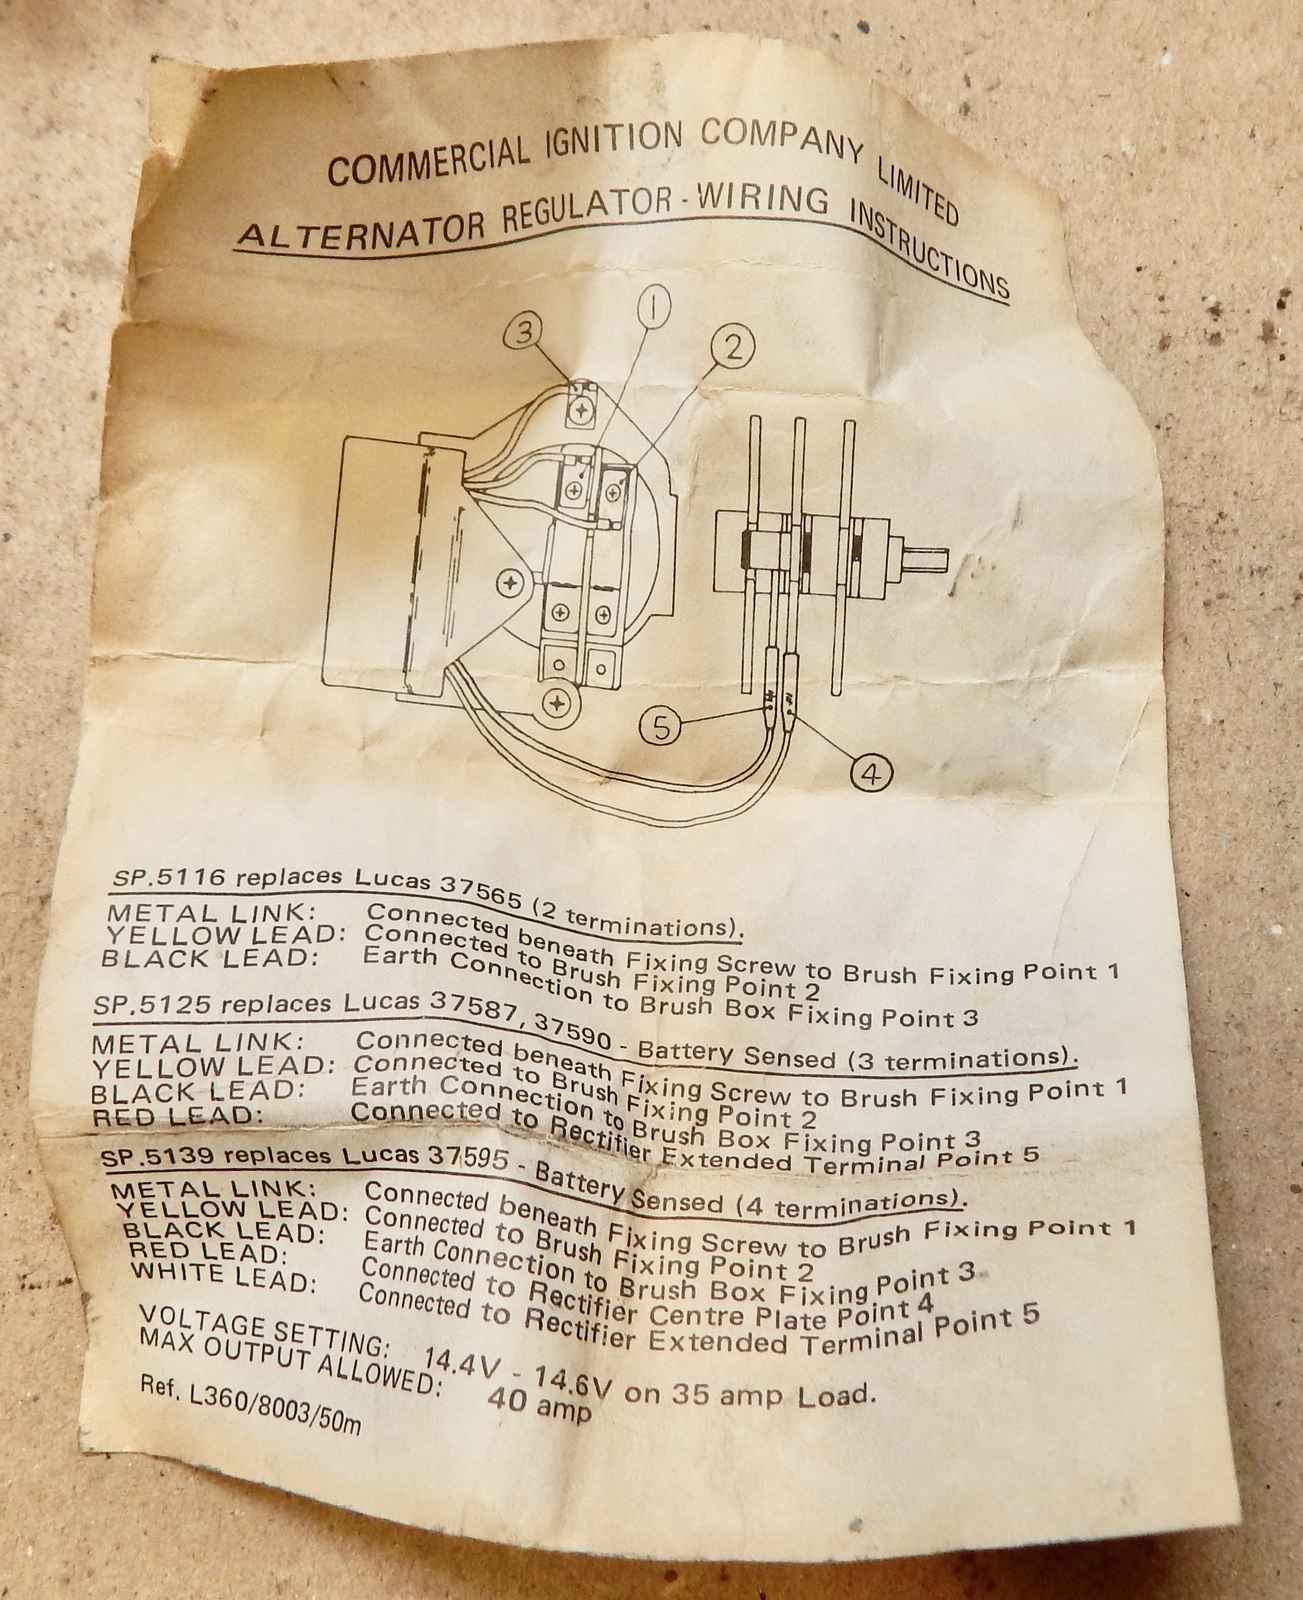 COMMERCIAL IGNITION COMPANY LIMITED
ALTERNATOR REGULATOR - WIRING INSTRUCTIONS
1
3
2
5
4
SP.5116 replaces Lucas 37565 (2 terminations).
METAL LINK: Connected beneath Fixing Screw to Brush Fixing Point 1
YELLOW LEAD: Connected to Brush Fixing Point 2
BLACK LEAD: Earth Connection to Brush Box Fixing Point 3
SP.5125 replaces Lucas 37587, 37590 - Battery Sensed (3 terminations).
METAL LINK: Connected beneath Fixing Screw to Brush Fixing Point 1
YELLOW LEAD: Connected to Brush Fixing Point 2
BLACK LEAD: Earth Connection to Brush Box Fixing Point 3
RED LEAD: Connected to Rectifier Extended Terminal Point 5
SP.5139 replaces Lucas 37595 - Battery Sensed (4 terminations).
METAL LINK: Connected beneath Fixing Screw to Brush Fixing Point 1
YELLOW LEAD: Connected to Brush Fixing Point 2
BLACK LEAD: Earth Connection to Brush Box Fixing Point 3
RED LEAD: Connected to Rectifier Centre Plate Point 4
WHITE LEAD: Connected to Rectifier Extended Terminal Point 5
VOLTAGE SETTING: 14.4V - 14.6V on 35 amp Load.
MAX OUTPUT ALLOWED: 40 amp
Ref. L360/8003/50m